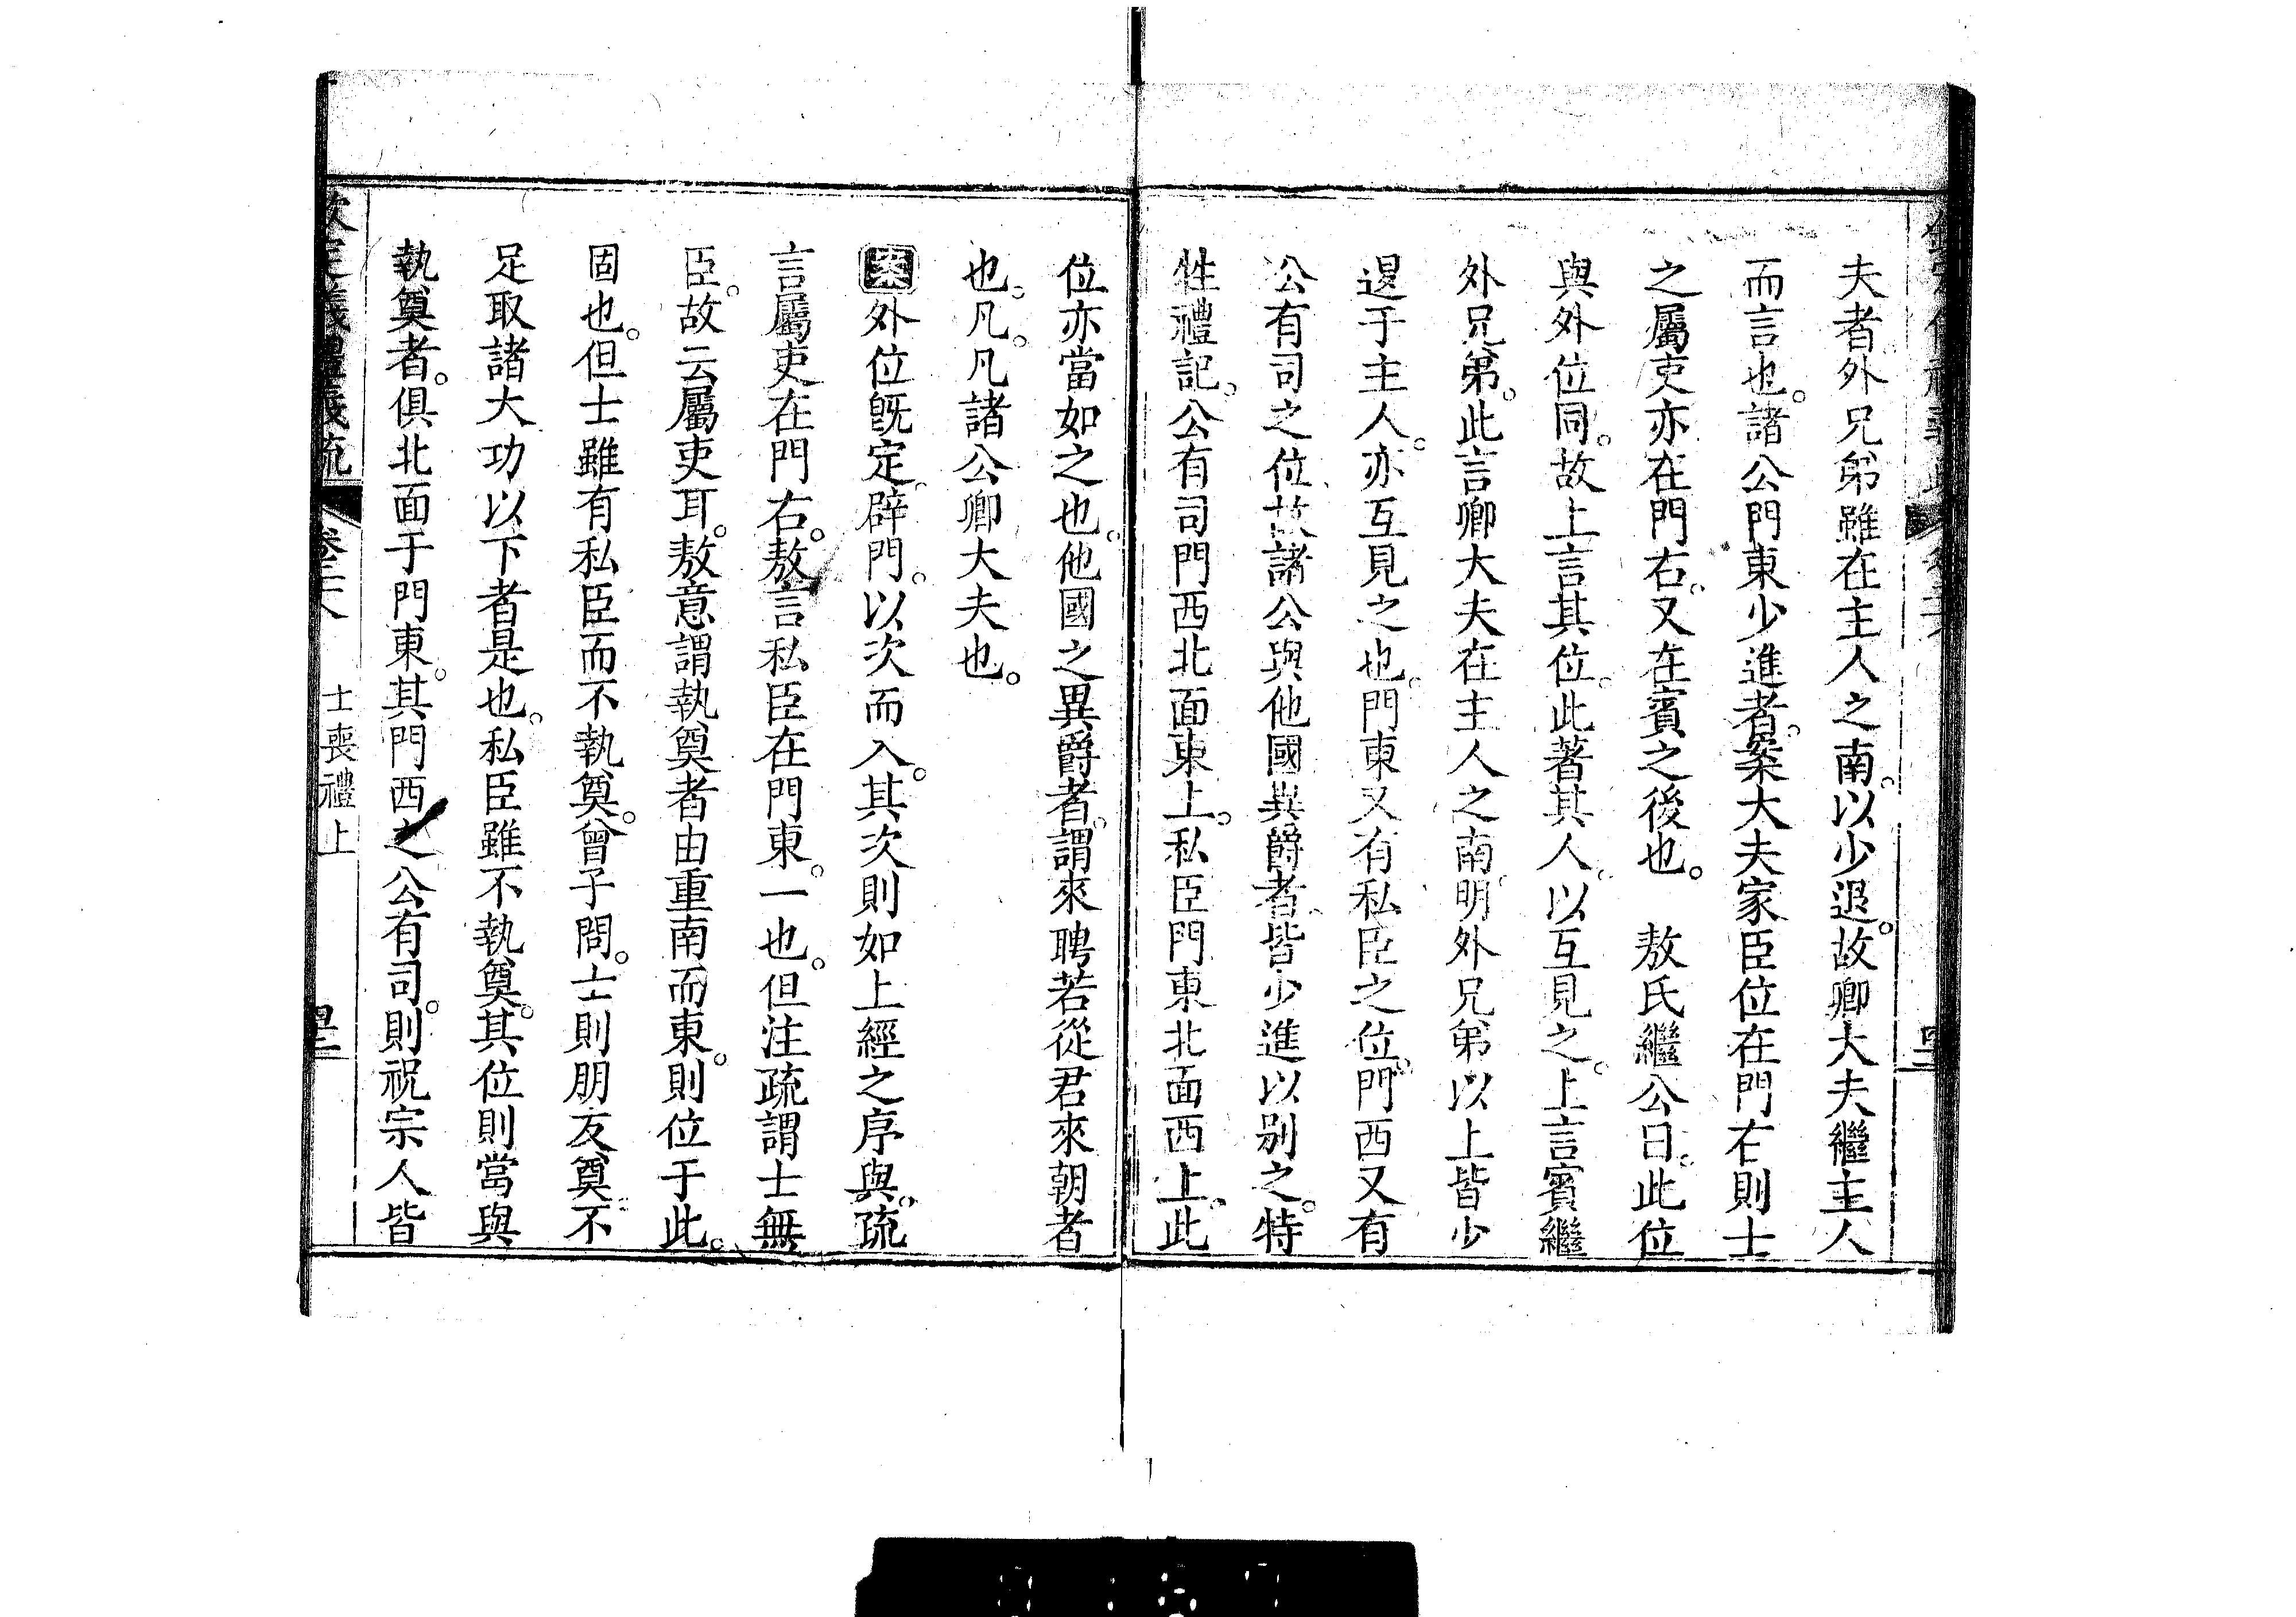 夫者外兄弟雖在主人之南。以少退。故卿大夫繼主人
而言也。諸公門東少進者。案大夫家臣位在門右則士
之屬吏亦在門右。又在賓之後也。　敖氏繼公曰。此位
與外位同。故上言其位。此著其人。以互見之。上言賓繼
外兄弟。此言卿大夫在主人之南。明外兄弟以上皆少
退于主人。亦互見之也。門東又有私臣之位。門西又有
公有司之位。故諸公與他國異爵者。皆少進以別之。特
牲禮記。公有司門西北面東上。私臣門東北面西上。此
位亦當如之也。他國之異爵者。謂來聘若從君來朝者
也。凡。凡諸公卿大夫也。
案外位旣定。辟門。以次而入。其次則如上經之序與。疏
言屬吏在門右。敖言私臣在門東。一也。但注疏謂士無
臣。故云屬吏耳。敖意謂執奠者由重南而東。則位于此。
固也。但士雖有私臣而不執奠。曾子問。士則朋友奠不
足取諸大功以下者是也。私臣雖不執奠。其位則當與
執奠者。俱北面于門東。其門西之公有司。則祝宗人皆
欽定義禮義疏　卷二十八　士喪禮上